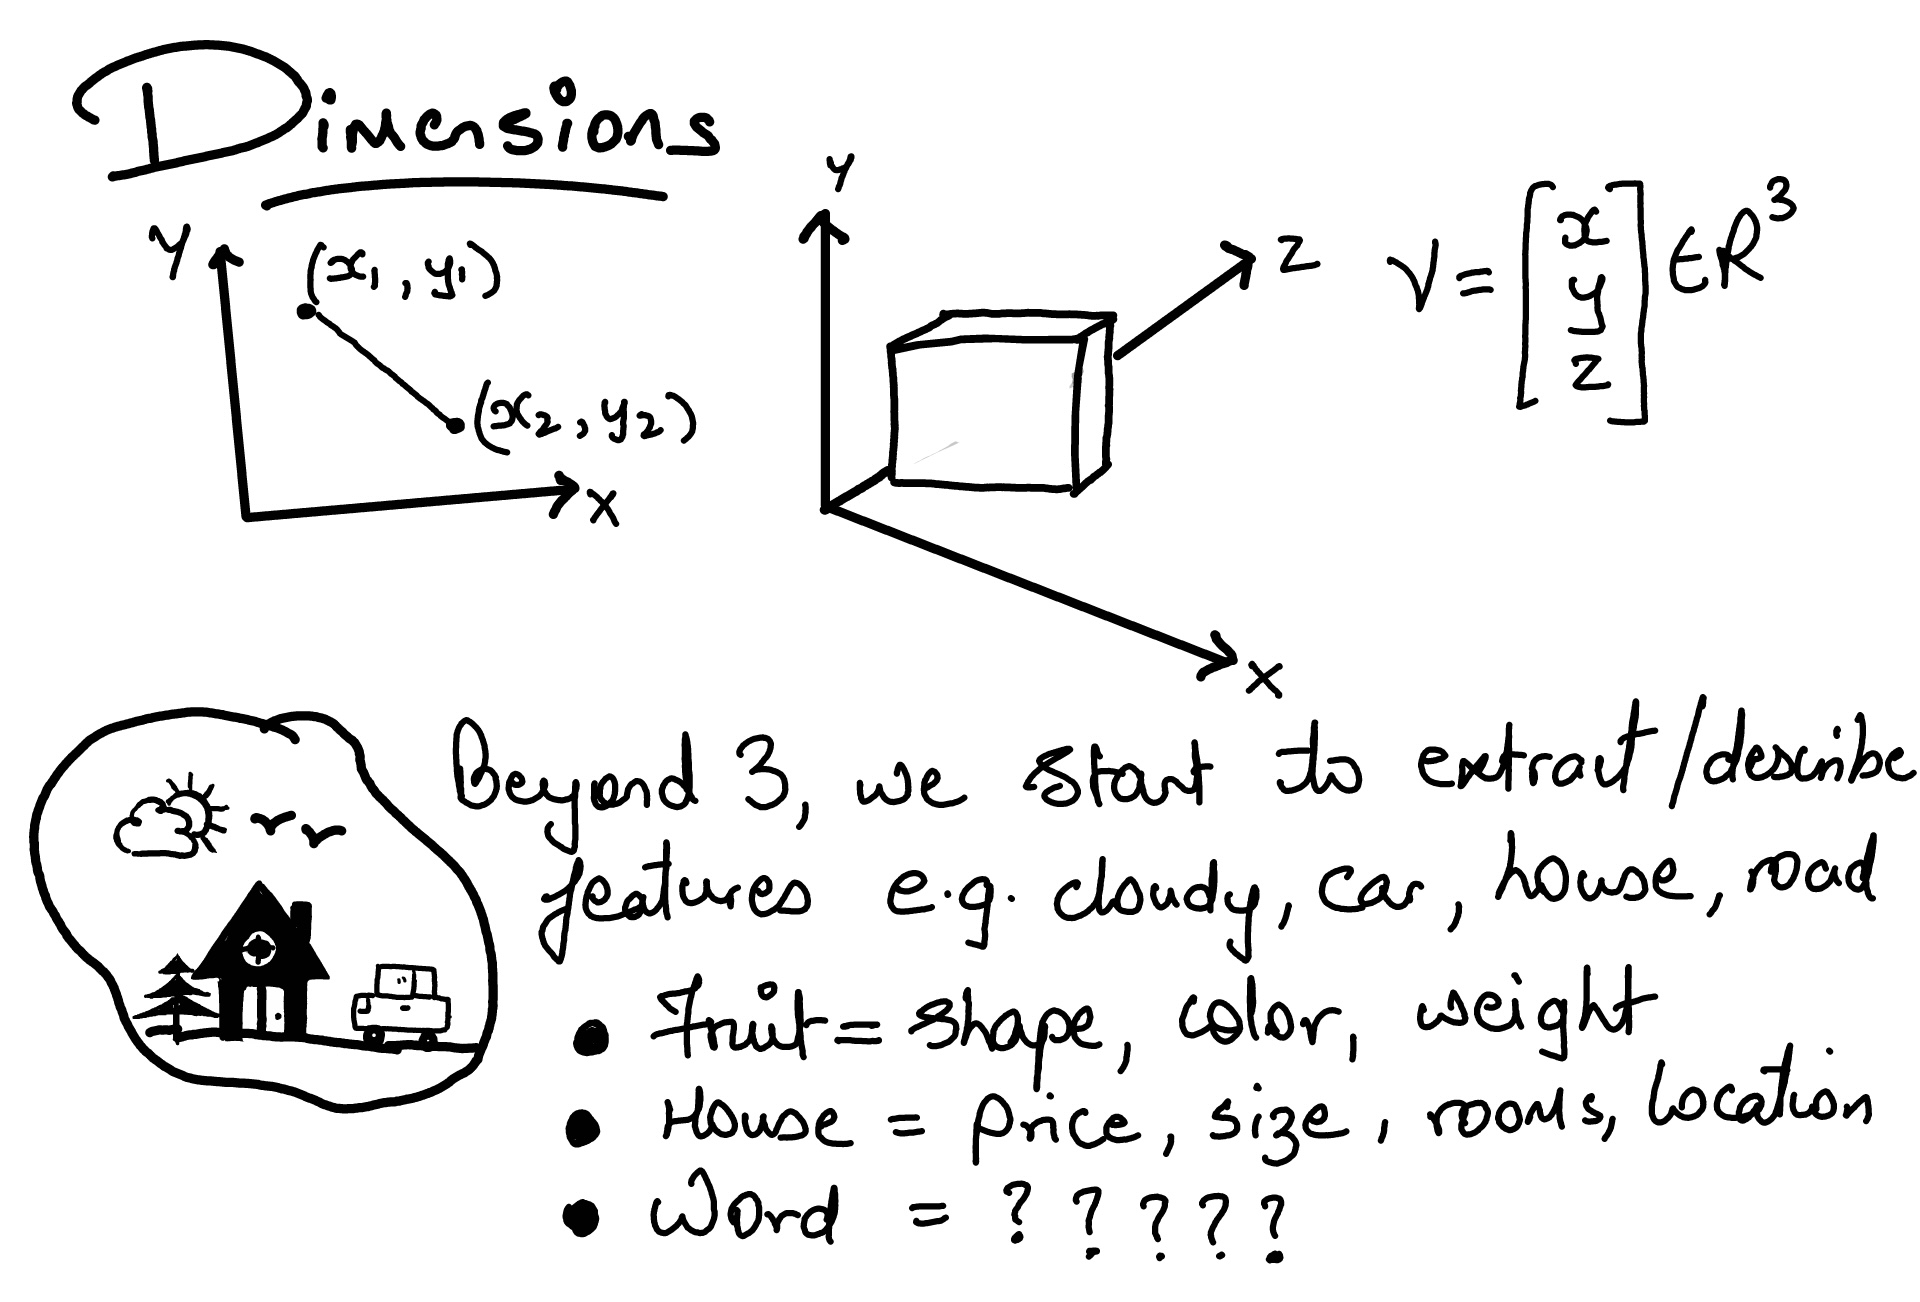 Dimensions
Y
(x₁, y₁)
(x₂, y₂)
X
Y
Z
X
V = [x y z] ∈ R³
Beyond 3, we start to extract/describe
features e.g. cloudy, car, house, road
• Fruit = shape, color, weight
• House = price, size, rooms, location
• Word = ? ? ? ? ?